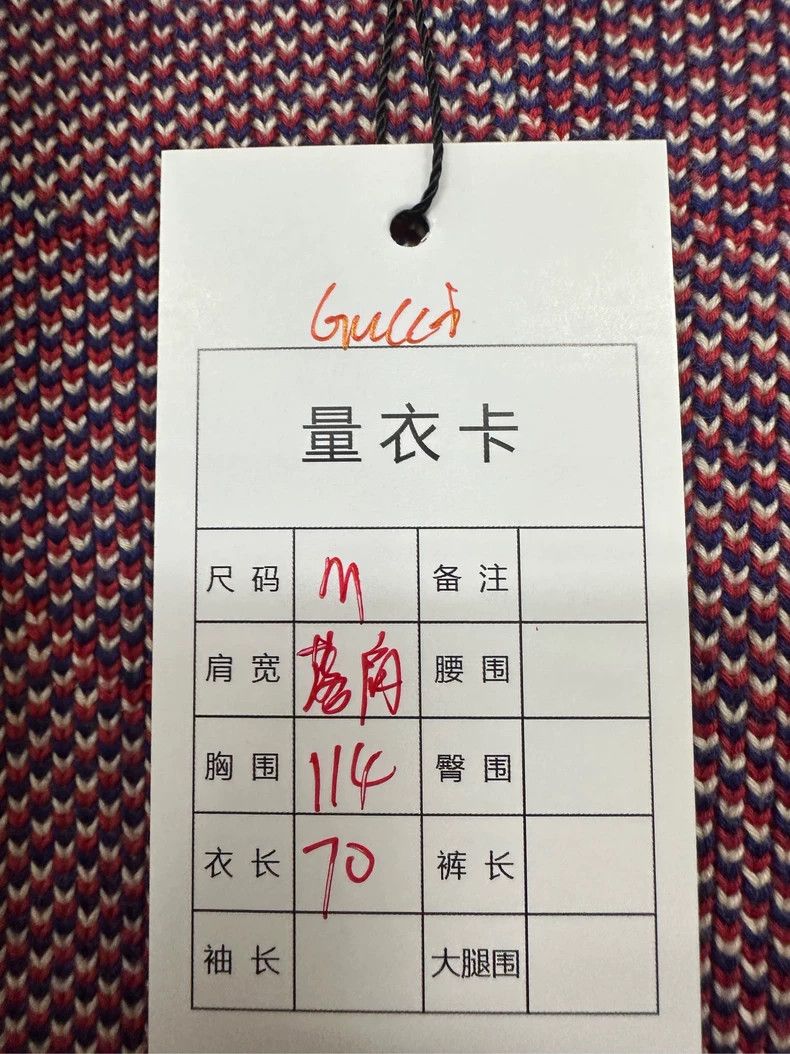 Gucci
量衣卡
尺码 M 备注
肩宽 落肩 腰围
胸围 114 臀围
衣长 70 裤长
袖长 大腿围